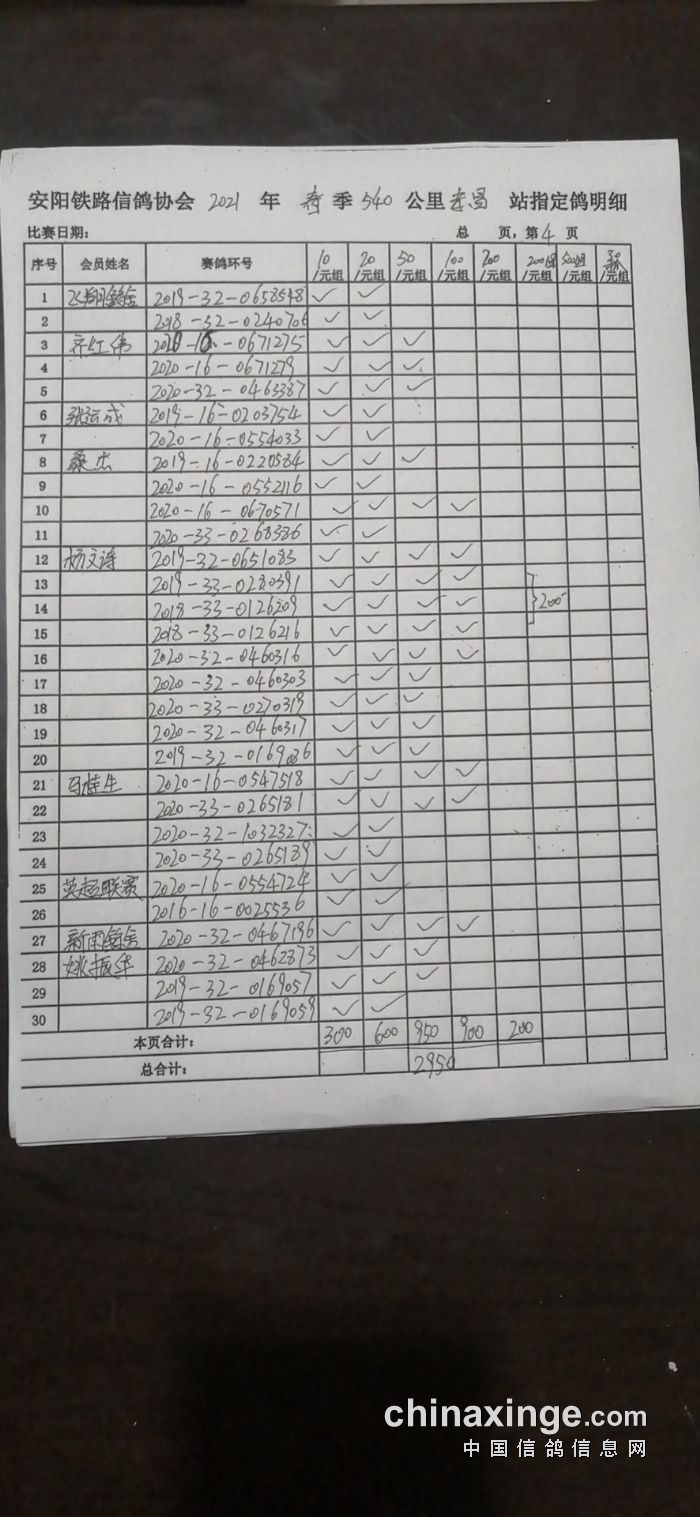 安阳铁路信鸽协会 2021 年 春 季 540 公里 孝昌 站指定鸽明细
比赛日期： 总 页，第 4 页
序号 会员姓名 赛鸽环号 10/元组 20/元组 50/元组 100/元组 200/元组 200组/元组 500组/元组 /元组
1 飞翔鸽舍 2019-32-0658548 ✓ ✓
2 2018-32-0240706 ✓ ✓
3 齐红伟 2020-16-0671275 ✓ ✓ ✓
4 2020-16-0671279 ✓ ✓ ✓
5 2020-32-0463387 ✓ ✓ ✓
6 张运成 2019-16-0203754 ✓ ✓
7 2020-16-0554033 ✓ ✓
8 桑杰 2019-16-0220584 ✓ ✓ ✓
9 2020-16-0552116 ✓ ✓
10 2020-16-0670571 ✓ ✓ ✓ ✓
11 2020-33-0268386 ✓ ✓
12 杨文涛 2019-32-0651083 ✓ ✓ ✓ ✓
13 2019-33-0280391 ✓ ✓ ✓ ✓
14 2018-33-0126209 ✓ ✓ ✓ ✓ }200
15 2018-33-0126216 ✓ ✓ ✓ ✓
16 2020-32-0460316 ✓ ✓ ✓ ✓
17 2020-32-0460303 ✓ ✓ ✓
18 2020-33-0270319 ✓ ✓ ✓
19 2020-32-0460317 ✓ ✓ ✓
20 2019-32-0169 ✓ ✓ ✓
21 马桂生 2020-16-0547518 ✓ ✓ ✓ ✓
22 2020-33-0265181 ✓ ✓ ✓ ✓
23 2020-32-1032327 ✓ ✓
24 2020-33-0265189 ✓ ✓
25 英超联赛 2020-16-0554724 ✓ ✓
26 2016-16-0025536 ✓ ✓
27 新雨鸽舍 2020-32-0467196 ✓ ✓ ✓ ✓
28 姚振华 2020-32-0462873 ✓ ✓ ✓
29 2019-32-0169057 ✓ ✓ ✓
30 2019-32-0169059 ✓ ✓
本页合计： 300 600 950 900 200
总合计： 2950
chinaxinge.com
中国信鸽信息网